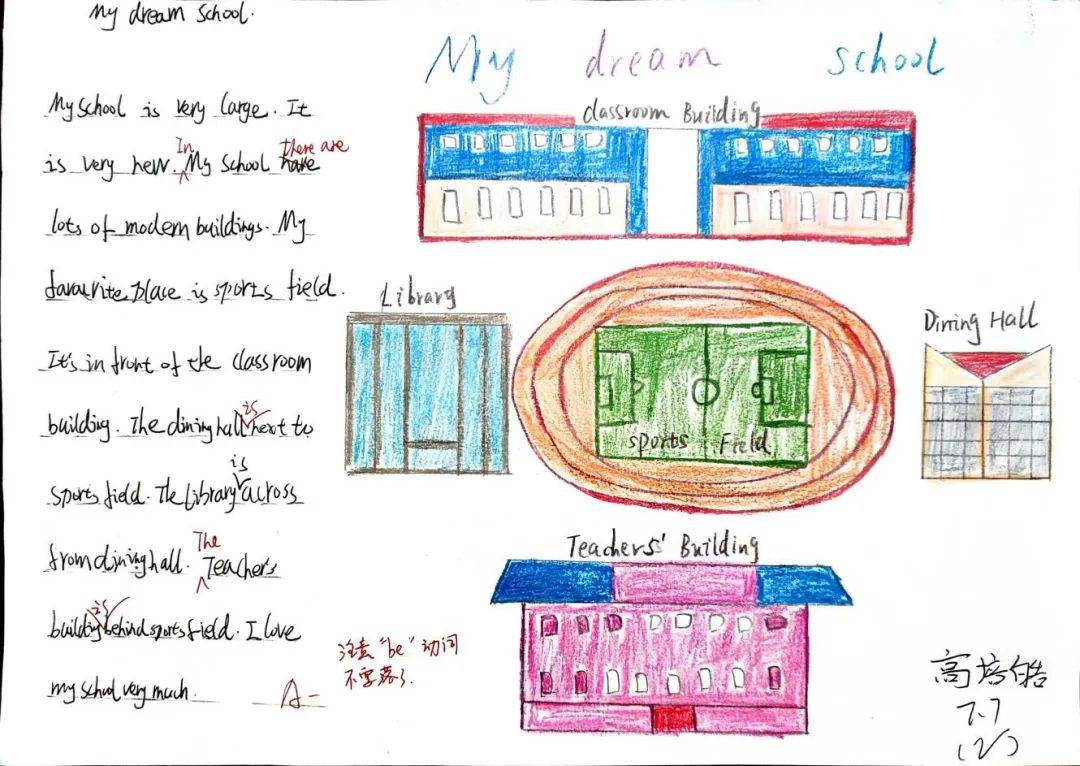 My dream school.
My dream school
My school is very large. It
is very new. In My school have there are
lots of modern buildings. My
favourite place is sports field.
It's in front of the classroom
building. The dining hall is next to
sports field. The library is across
from dining hall. The Teachers
building is behind sports field. I love
my school very much.
A-
注意“be”动词
不要落了.
Classroom Building
Library
Sports Field
Dining Hall
Teachers' Building
高培皓
7.7
(2)